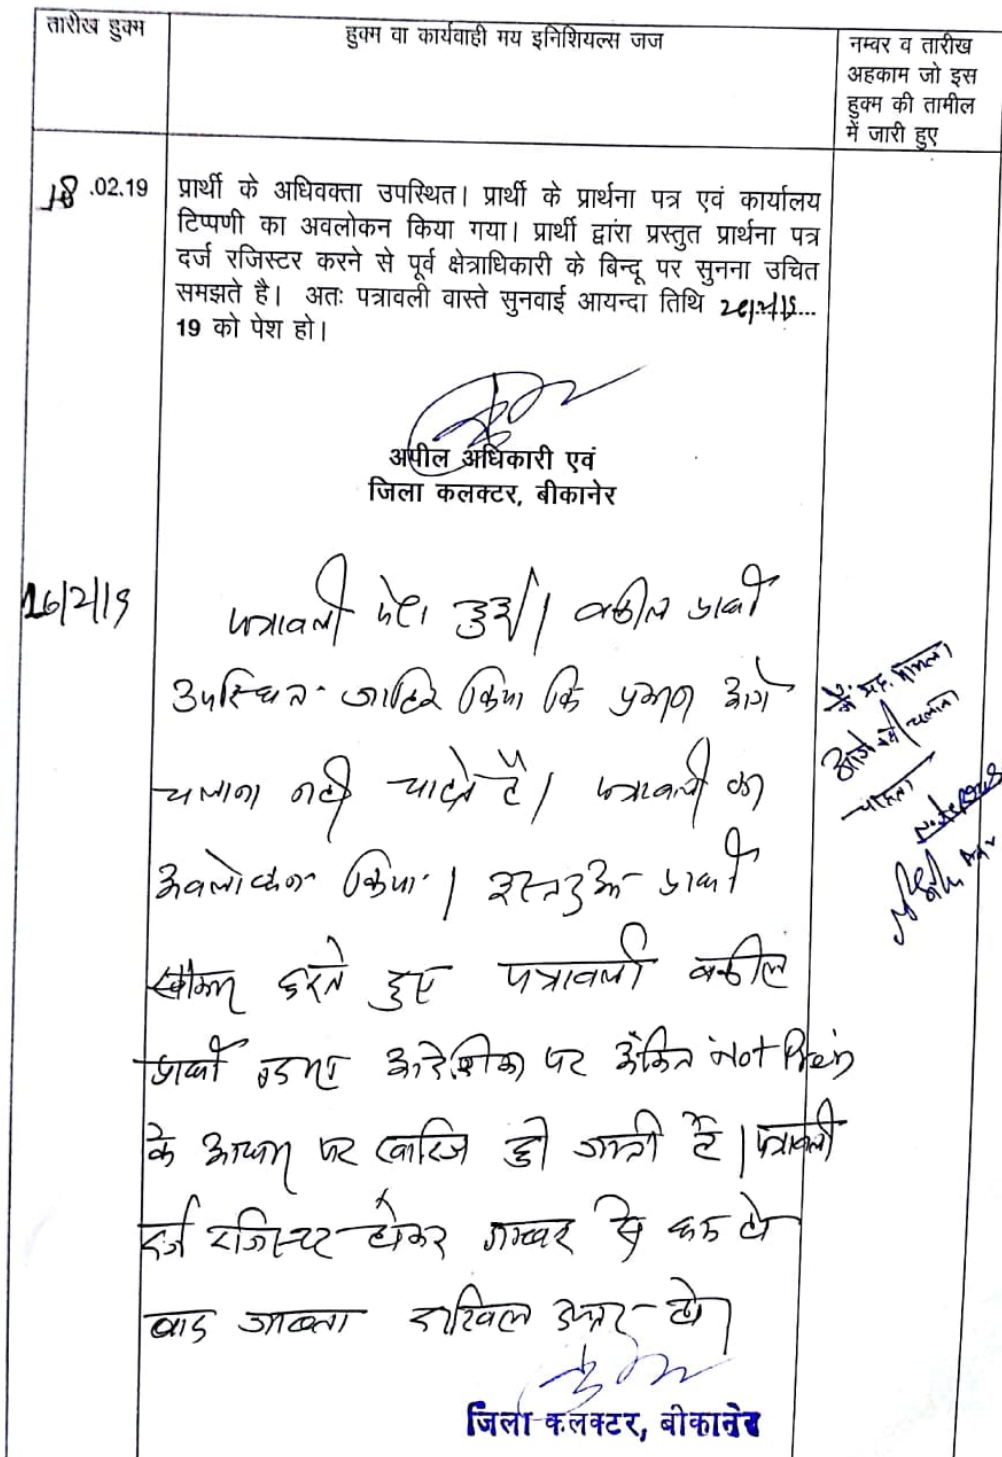 तारीख हुक्म
हुक्म वा कार्यवाही मय इनिशियल्स जज
नम्वर व तारीख
अहकाम जो इस
हुक्म की तामील
में जारी हुए
18 .02.19
प्रार्थी के अधिवक्ता उपस्थित। प्रार्थी के प्रार्थना पत्र एवं कार्यालय
टिप्पणी का अवलोकन किया गया। प्रार्थी द्वांरा प्रस्तुत प्रार्थना पत्र
दर्ज रजिस्टर करने से पूर्व क्षेत्राधिकारी के बिन्दू पर सुनना उचित
समझते है। अतः पत्रावली वास्ते सुनवाई आयन्दा तिथि
19 को पेश हो।
अपील अधिकारी एवं
जिला कलक्टर, बीकानेर
26/2/19
पत्रावली पेश हुई। वकील प्रार्थी
उपस्थित जाहिर किया कि प्रकरण आगे
चलाना नही चाहते है। पत्रावली का
अवलोकन किया। प्रार्थी
स्वीकार करते हुए पत्रावली वकील
प्रार्थी आदेशिका पर अंकित Not Press
के आधार पर खारिज की जाती है। पत्रावली
दर्ज रजिस्टर होकर नम्बर से कम हो
बाद जाब्ता दाखिल दफ्तर हो।
मैं यह मामला
आगे नही चलाना
चाहता
जिला कलक्टर, बीकानेर